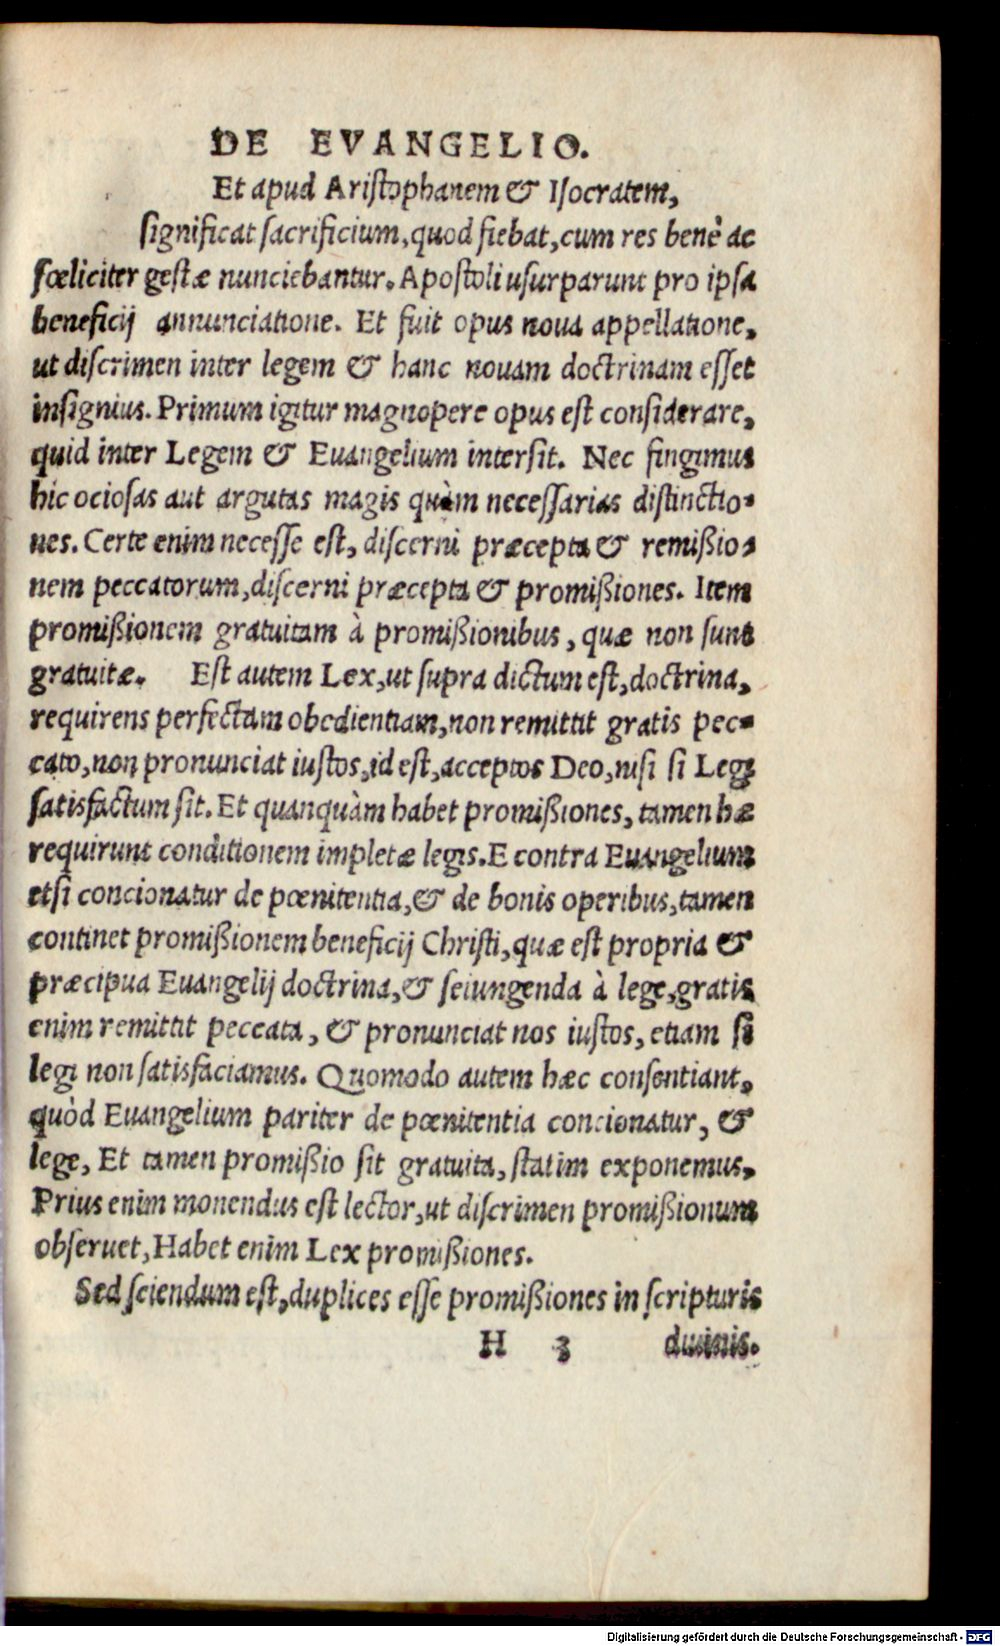 DE EVANGELIO.
Et apud Aristophanem & Isocratem,
significat sacrificium, quod fiebat, cum res benè ac
fœliciter gestæ nunciebantur. Apostoli usurparunt pro ipsa
beneficij annunciatione. Et fuit opus noua appellatione,
ut discrimen inter legem & hanc nouam doctrinam esset
insignius. Primum igitur magnopere opus est considerare,
quid inter Legem & Euangelium intersit. Nec fingimus
hic ociosas aut argutas magis quàm necessarias distinctio-
nes. Certe enim necesse est, discerni præcepta & remißio-
nem peccatorum, discerni præcepta & promißiones. Item
promißionem gratuitam à promißionibus, quæ non sunt
gratuitæ. Est autem Lex, ut supra dictum est, doctrina,
requirens perfectam obedientiam, non remittit gratis pec-
cato, non pronunciat iustos, id est, acceptos Deo, nisi si Legi
satisfactum sit. Et quanquàm habet promißiones, tamen hæ
requirunt conditionem impletæ legis. E contra Euangelium
etsi concionatur de pœnitentia, & de bonis operibus, tamen
continet promißionem beneficij Christi, quæ est propria &
præcipua Euangelij doctrina, & seiungenda à lege, gratis
enim remittit peccata, & pronunciat nos iustos, etiam si
legi non satisfaciamus. Quomodo autem hæc consentiant,
quòd Euangelium pariter de pœnitentia concionatur, &
lege, Et tamen promißio sit gratuita, statim exponemus.
Prius enim monendus est lector, ut discrimen promißionum
obseruet, Habet enim Lex promißiones.
Sed sciendum est, duplices esse promißiones in scripturis
H 3 diuinis.
Digitalisierung gefördert durch die Deutsche Forschungsgemeinschaft - DFG